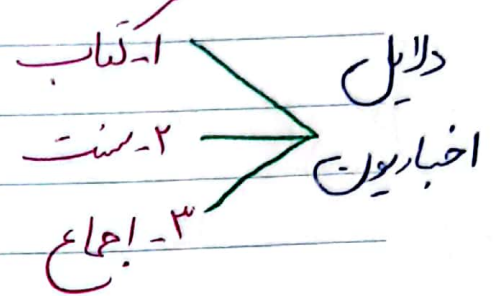 دلایل
اخباریون
۱- کتاب
۲- سنت
۳- اجماع